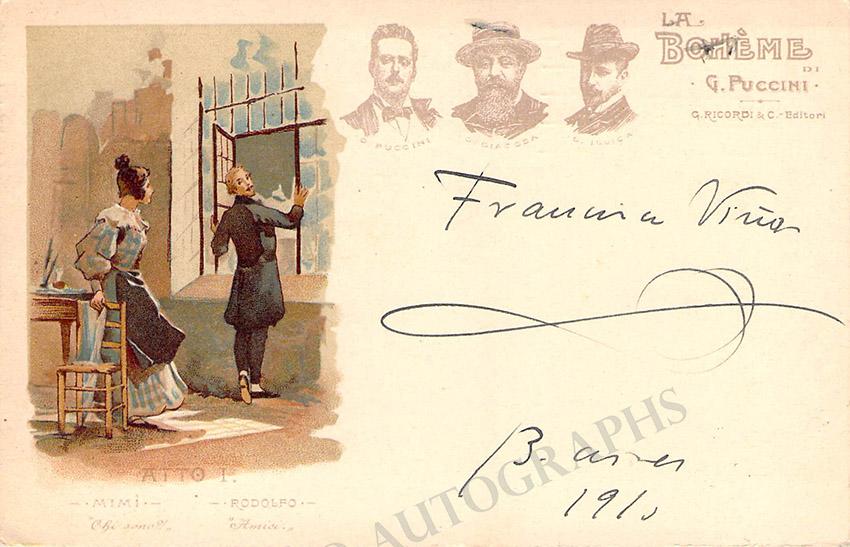 LA
BOHÈME
DI
G. PUCCINI
G. RICORDI & C. - Editori
G. PUCCINI G. GIACOSA L. ILLICA
Francisco Viñas
B. aires
1910
ATTO I.
- MIMÌ - - RODOLFO -
"Chi sono?" "Amici..."
AUTOGRAPHS